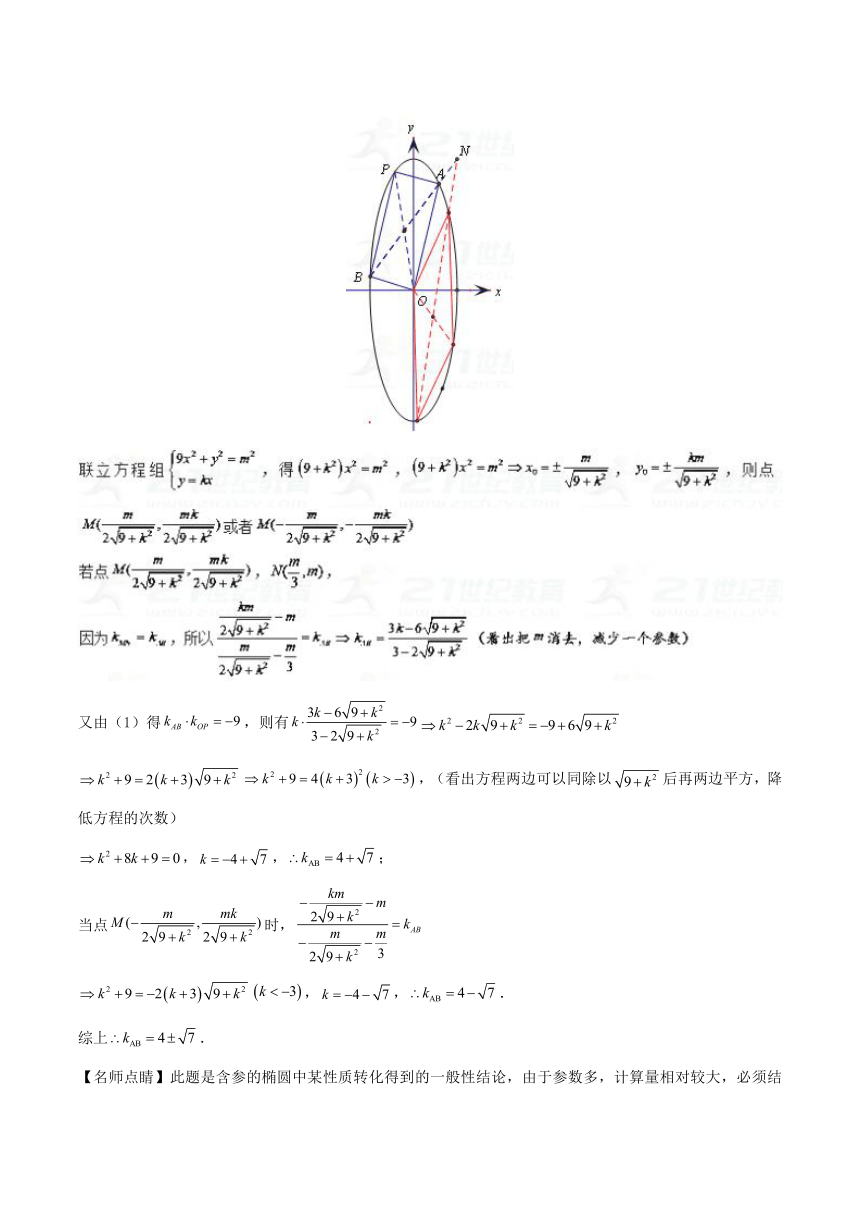 y
N
P
A
B
O
x
联立方程组{9x²+y²=m², y=kx ，得(9+k²)x²=m²，(9+k²)x²=m²⇒x₀=±m/√(9+k²)，y₀=±km/√(9+k²)，则点
M(m/(2√(9+k²)),mk/(2√(9+k²)))或者M(-m/(2√(9+k²)),-mk/(2√(9+k²)))
若点M(m/(2√(9+k²)),mk/(2√(9+k²)))，N(m/3,m)，
所以(km/(2√(9+k²))-m)/(m/(2√(9+k²))-m/3)=k ⇒k =(3k-6√(9+k²))/(3-2√(9+k²))（看出把m消去，减少一个参数）
又由（1）得k_AB·k_OP=-9，则有k·(3k-6√(9+k²))/(3-2√(9+k²))=-9⇒k²-2k√(9+k²)=-9+6√(9+k²)
⇒k²+9=2(k+3)√(9+k²) ⇒k²+9=4(k+3)²(k>-3)，（看出方程两边可以同除以√(9+k²)后再两边平方，降
低方程的次数）
⇒k²+8k+9=0，k=-4+√7，∴k_AB=4+√7；
当点M(-m/(2√(9+k²)),mk/(2√(9+k²)))时，(-km/(2√(9+k²))-m)/(-m/(2√(9+k²))-m/3)=k_AB
⇒k²+9=-2(k+3)√(9+k²) (k<-3)，k=-4-√7，∴k_AB=4-√7．
综上∴k_AB=4±√7．
【名师点睛】此题是含参的椭圆中某性质转化得到的一般性结论，由于参数多，计算量相对较大，必须结